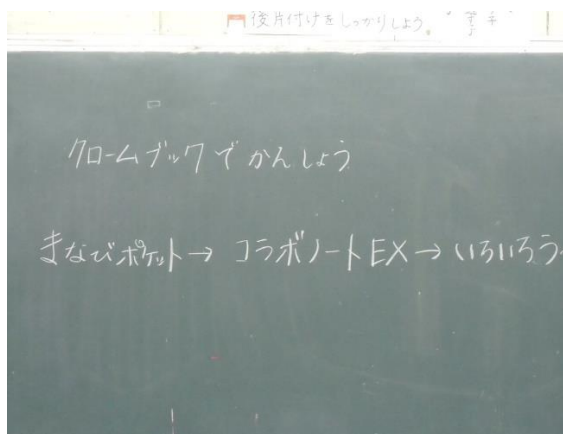 後片付けをしっかりしよう。
クロームブックでかんしょう
まなびポケット→コラボノートEX→いろいろう